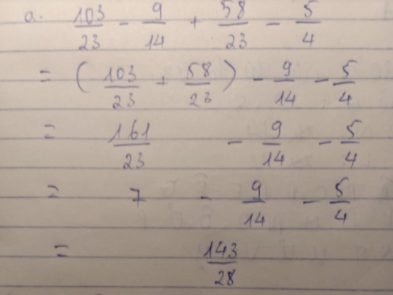 a. 103/23 - 9/14 + 58/23 - 5/4
= ( 103/23 + 58/23 ) - 9/14 - 5/4
= 161/23 - 9/14 - 5/4
= 7 - 9/14 - 5/4
= 143/28